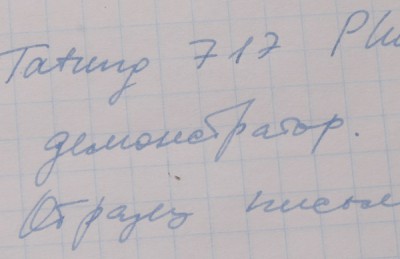 Tatung 717 Plu
демонстратор.
Образец письм